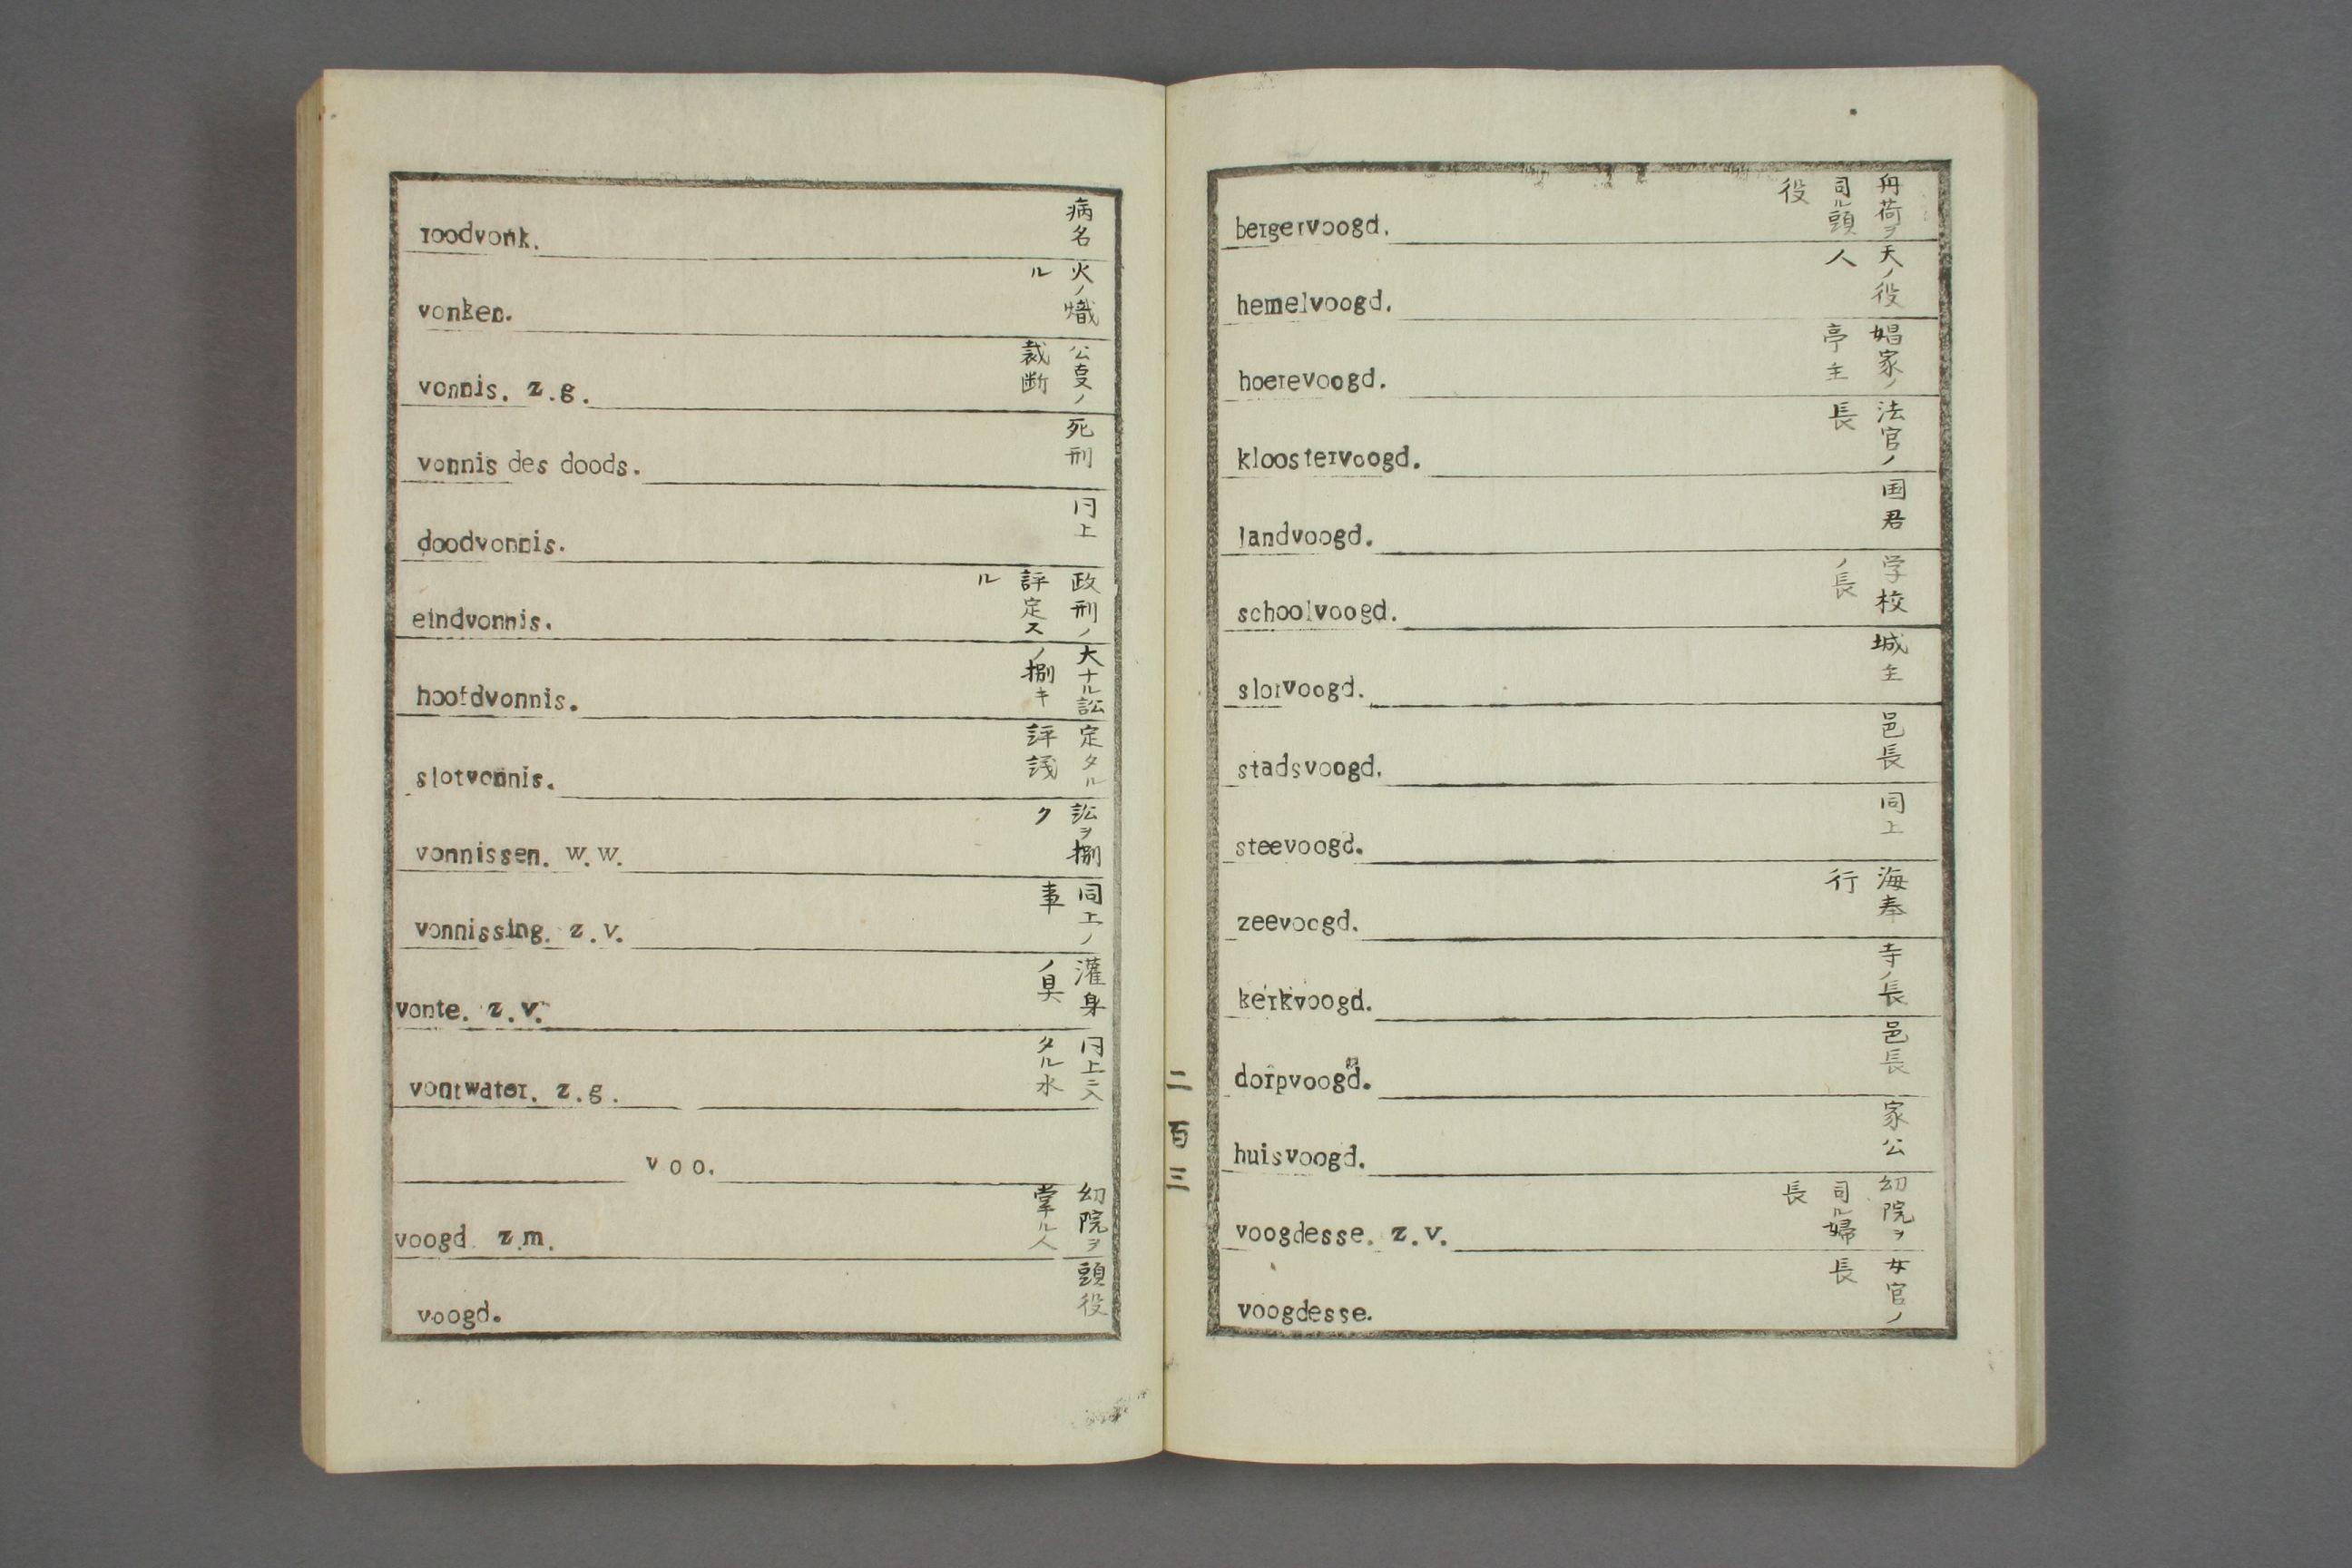 roodvonk.
病名
vonken.
火ノ熾
ル
vonnis. z.g.
公叓ノ
裁断
vonnis des doods.
死刑
doodvonnis.
仝上
eindvonnis.
政刑ノ
評定ス
ル
hoofdvonnis.
大ナル訟
ノ捌キ
slotvonnis.
定タル
評議
vonnissen. w.w.
訟ヲ捌
ク
vonnissing. z.v.
同上ノ
事
vonte. z.v.
灌身
ノ具
vontwater. z.g.
タル水
voo.
voogd. z.m.
幼院ヲ
掌ル人
voogd.
頭役
二百三
bergervoogd.
舟荷ヲ
司ル頭
役
hemelvoogd.
天ノ役
人
hoerevoogd.
娼家ノ
亭主
kloostervoogd.
法官ノ
長
landvoogd.
国君
schoolvoogd.
学校
ノ長
slotvoogd.
城主
stadsvoogd.
邑長
steevoogd.
同上
zeevoogd.
海奉
行
kerkvoogd.
寺ノ長
dorpvoogd.
邑長
huisvoogd.
家公
voogdesse. z.v.
幼院ヲ
司ル婦
長
voogdesse.
女官ノ
長